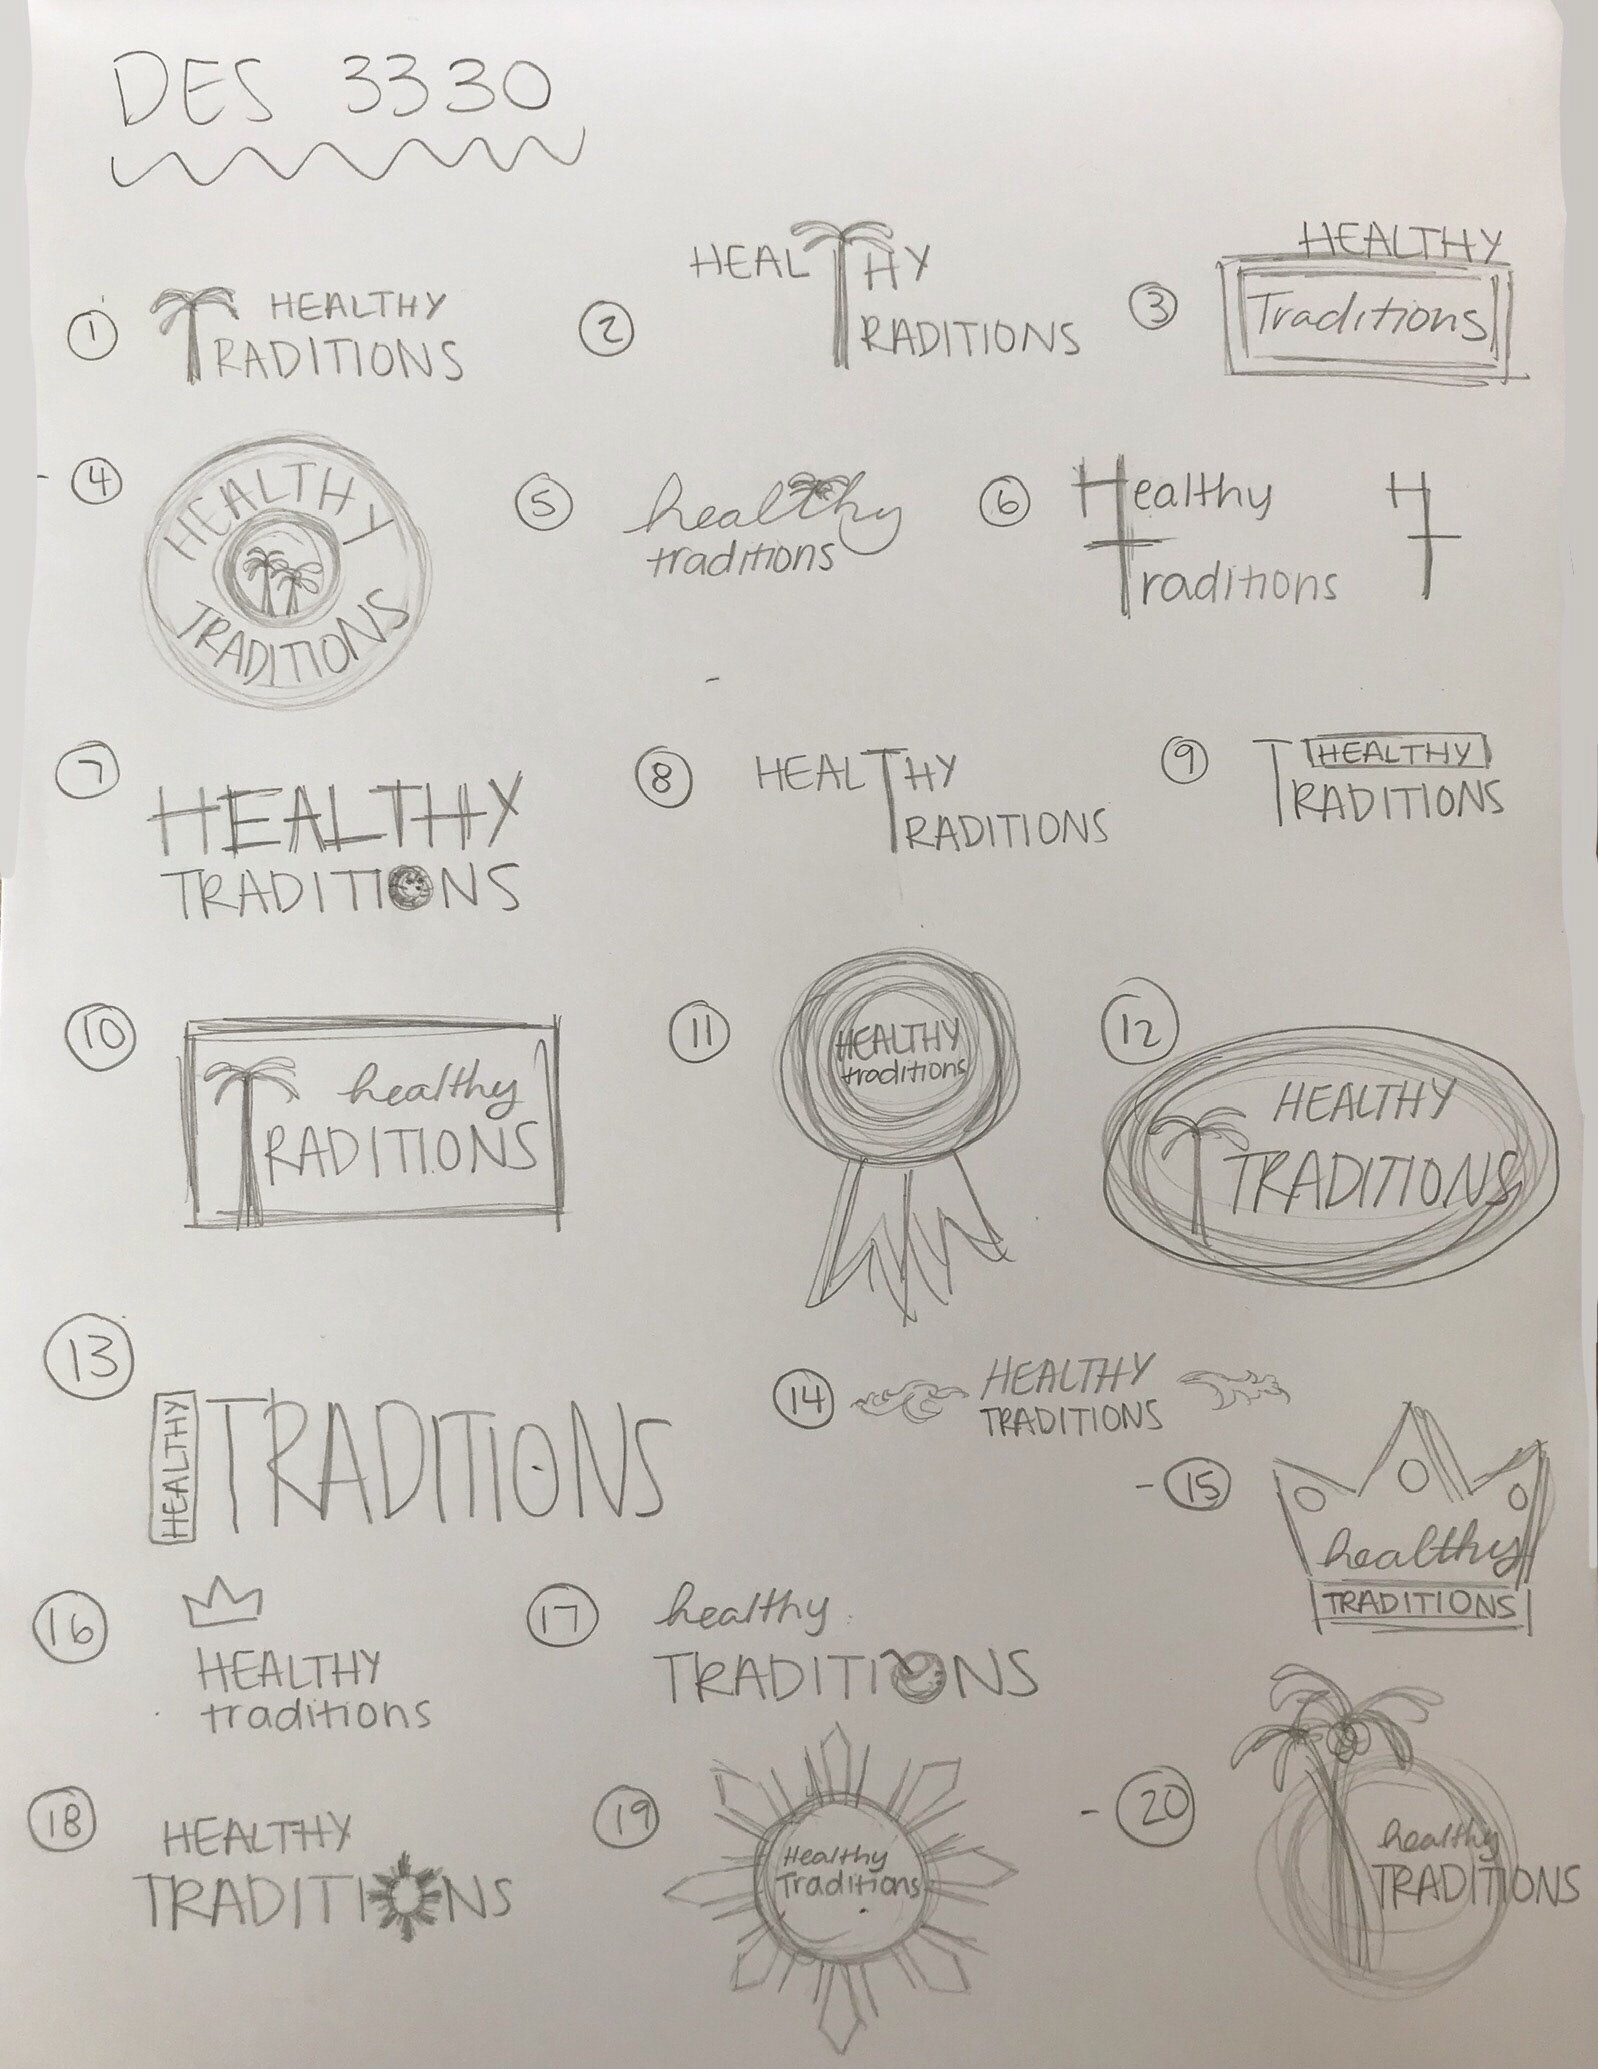 DES 3330
1
HEALTHY
TRADITIONS
2
HEALTHY
TRADITIONS
3
HEALTHY
Traditions
4
HEALTHY
TRADITIONS
5
healthy
traditions
6
Healthy
Traditions
HT
7
HEALTHY
TRADITIONS
8
HEALTHY
TRADITIONS
9
HEALTHY
TRADITIONS
10
healthy
TRADITIONS
11
HEALTHY
traditions
12
HEALTHY
TRADITIONS
13
HEALTHY
TRADITIONS
14
HEALTHY
TRADITIONS
15
healthy
TRADITIONS
16
HEALTHY
traditions
17
healthy
TRADITIONS
18
HEALTHY
TRADITIONS
19
Healthy
Traditions
20
healthy
TRADITIONS